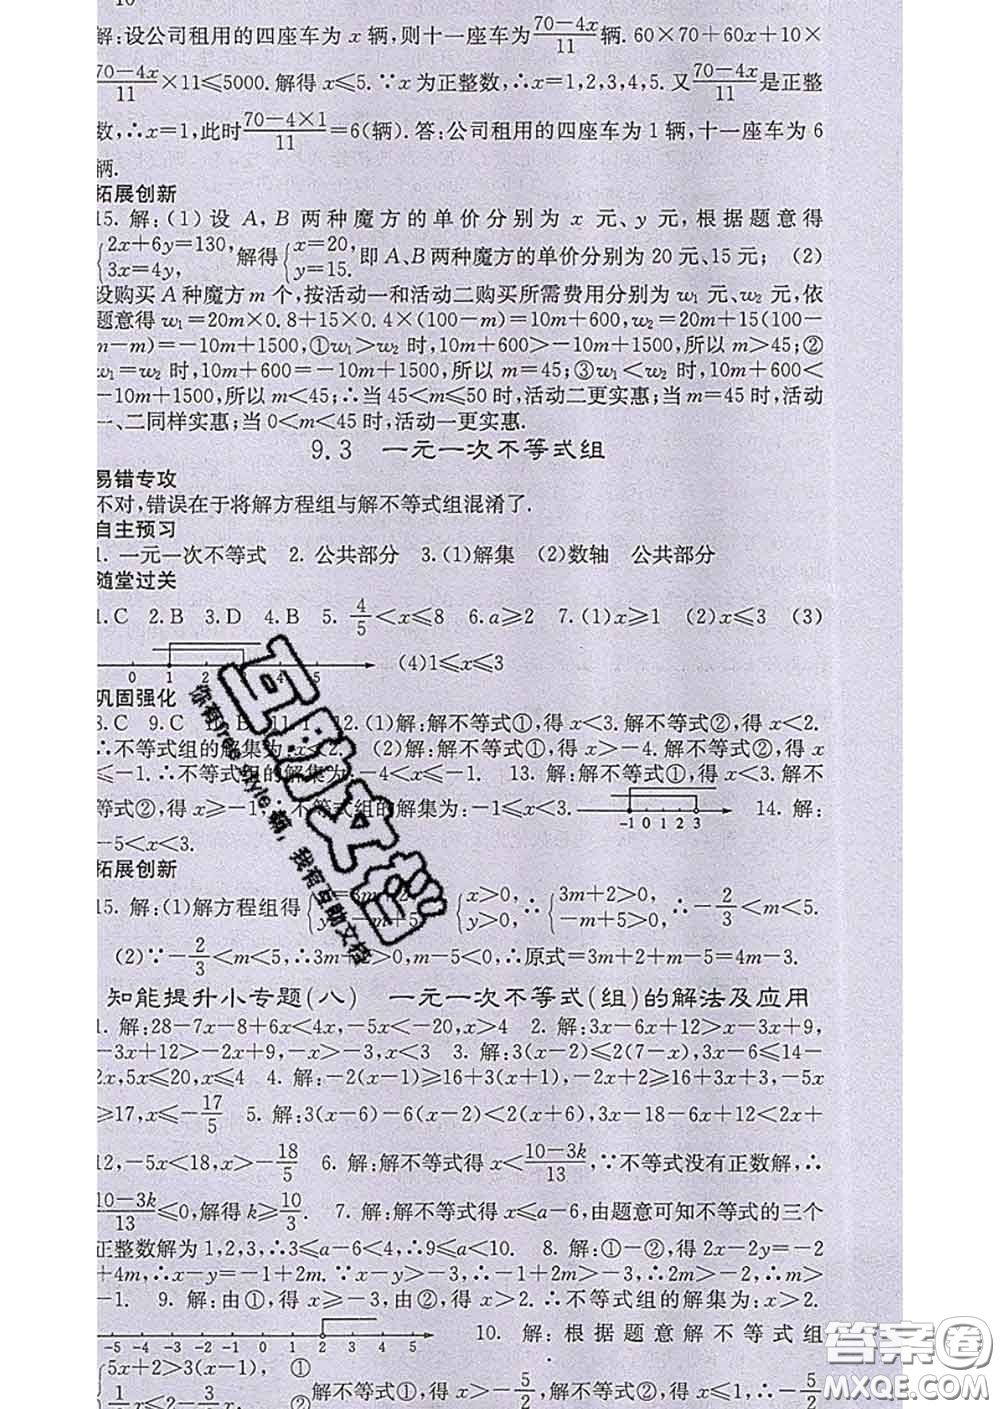 10
解:设公司租用的四座车为 x 辆,则十一座车为 (70-4x)/11 辆. 60×70+60x+10×
(70-4x)/11 ×11≤5000. 解得 x≤5. ∵x 为正整数,∴x=1,2,3,4,5. 又 (70-4x)/11 是正整
数,∴x=1,此时 (70-4×1)/11 =6(辆). 答:公司租用的四座车为 1 辆,十一座车为 6
辆.
拓展创新
15. 解:(1) 设 A, B 两种魔方的单价分别为 x 元、y 元,根据题意得
{2x+6y=130, 3x=4y, 解得 {x=20, y=15. 即 A、B 两种魔方的单价分别为 20 元、15 元; (2)
设购买 A 种魔方 m 个,按活动一和活动二购买所需费用分别为 w₁ 元、w₂ 元,依
题意得 w₁=20m×0.8+15×0.4×(100-m)=10m+600,w₂=20m+15(100-
m-m)=-10m+1500,①w₁>w₂ 时,10m+600>-10m+1500,所以 m>45;②
w₁=w₂ 时,10m+600=-10m+1500,所以 m=45;③w₁<w₂ 时,10m+600<
-10m+1500,所以 m<45;∴当 45<m≤50 时,活动二更实惠;当 m=45 时,活动
一、二同样实惠;当 0<m<45 时,活动一更实惠.
9.3 一元一次不等式组
易错专攻
不对,错误在于将解方程组与解不等式组混淆了.
自主预习
1. 一元一次不等式 2. 公共部分 3. (1)解集 (2)数轴 公共部分
随堂过关
1. C 2. B 3. D 4. B 5. 4/5<x≤8 6. a≥2 7. (1)x≥1 (2)x≤3 (3)
0 1 2 4 5 (4)1≤x≤3
巩固强化
8. C 9. C B 11. 12. (1)解:解不等式①,得 x<3. 解不等式②,得 x<2.
∴不等式组的解集为:x<2. (2)解:解不等式①,得 x>-4. 解不等式②,得 x
≤-1. ∴不等式组的解集为:-4<x≤-1. 13. 解:解不等式①,得 x<3. 解不
等式②,得 x≥-1. 不等式组的解集为:-1≤x<3. -1 0 1 2 3 14. 解:
-5<x<3.
拓展创新
15. 解:(1)解方程组得 {x=3m+2, y=-m+5. {x>0, y>0, ∴ {3m+2>0, -m+5>0, ∴-2/3<m<5.
(2)∵-2/3<m<5,∴3m+2>0,m-5<0,∴原式=3m+2+m-5=4m-3.
知能提升小专题(八) 一元一次不等式(组)的解法及应用
1. 解:28-7x-8+6x<4x,-5x<-20,x>4 2. 解:3x-6x+12>x-3x+9,
-3x+12>-2x+9,-x>-3,x<3 3. 解:3(x-2)≤2(7-x),3x-6≤14-
2x,5x≤20,x≤4 4. 解:-2(x-1)≥16+3(x+1),-2x+2≥16+3x+3,-5x
≥17,x≤-17/5 5. 解:3(x-6)-6(x-2)<2(x+6),3x-18-6x+12<2x+
12,-5x<18,x>-18/5 6. 解:解不等式得 x<(10-3k)/13,∵不等式没有正数解,∴
(10-3k)/13≤0,解得 k≥10/3. 7. 解:解不等式得 x≤a-6,由题意可知不等式的三个
正整数解为 1,2,3,∴3≤a-6<4,∴9≤a<10. 8. 解:①-②,得 2x-2y=-2
+4m,∴x-y=-1+2m. ∵x-y>-3,∴-1+2m>-3,∴2m>-2,∴m>
-1. 9. 解:由①,得 x≥-3,由②,得 x>2. ∴不等式组的解集为:x>2.
-5 -4 -3 -2 -1 0 1 2 3 4 5 10. 解:根据题意解不等式组
{5x+2>3(x-1), ① 解不等式①,得 x>-5/2,解不等式②,得 x≤1,∴-5/2
互助文档
你有free style·嘛,我有互助文档
答案圈
MXQE.COM